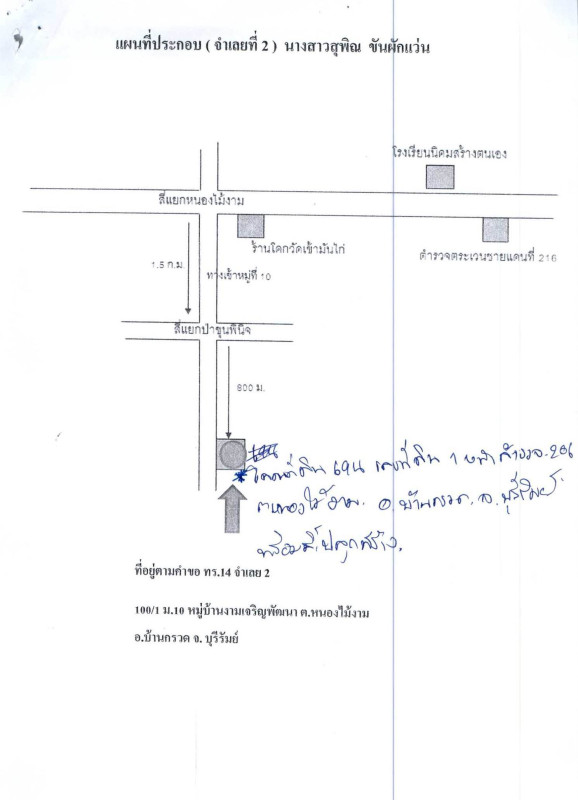 แผนที่ประกอบ ( จำเลยที่ 2 ) นางสาวสุพิณ ขันผักแว่น
โรงเรียนนิคมสร้างตนเอง
สี่แยกหนองไม้งาม
ร้านโคกวัดเข้ามันไก่
ตำรวจตระเวนชายแดนที่ 216
1.5 ก.ม.
ทางเข้าหมู่ที่ 10
สี่แยกป่าขุนพินิจ
800 ม.
โฉนดที่ดิน 694 เลขที่ดิน 1 หน้าสำรวจ 206
ต.หนองไม้งาม อ.บ้านกรวด จ.บุรีรัมย์
พร้อมสิ่งปลูกสร้าง.
ที่อยู่ตามคำขอ ทร.14 จำเลย 2
100/1 ม.10 หมู่บ้านงามเจริญพัฒนา ต.หนองไม้งาม
อ.บ้านกรวด จ. บุรีรัมย์